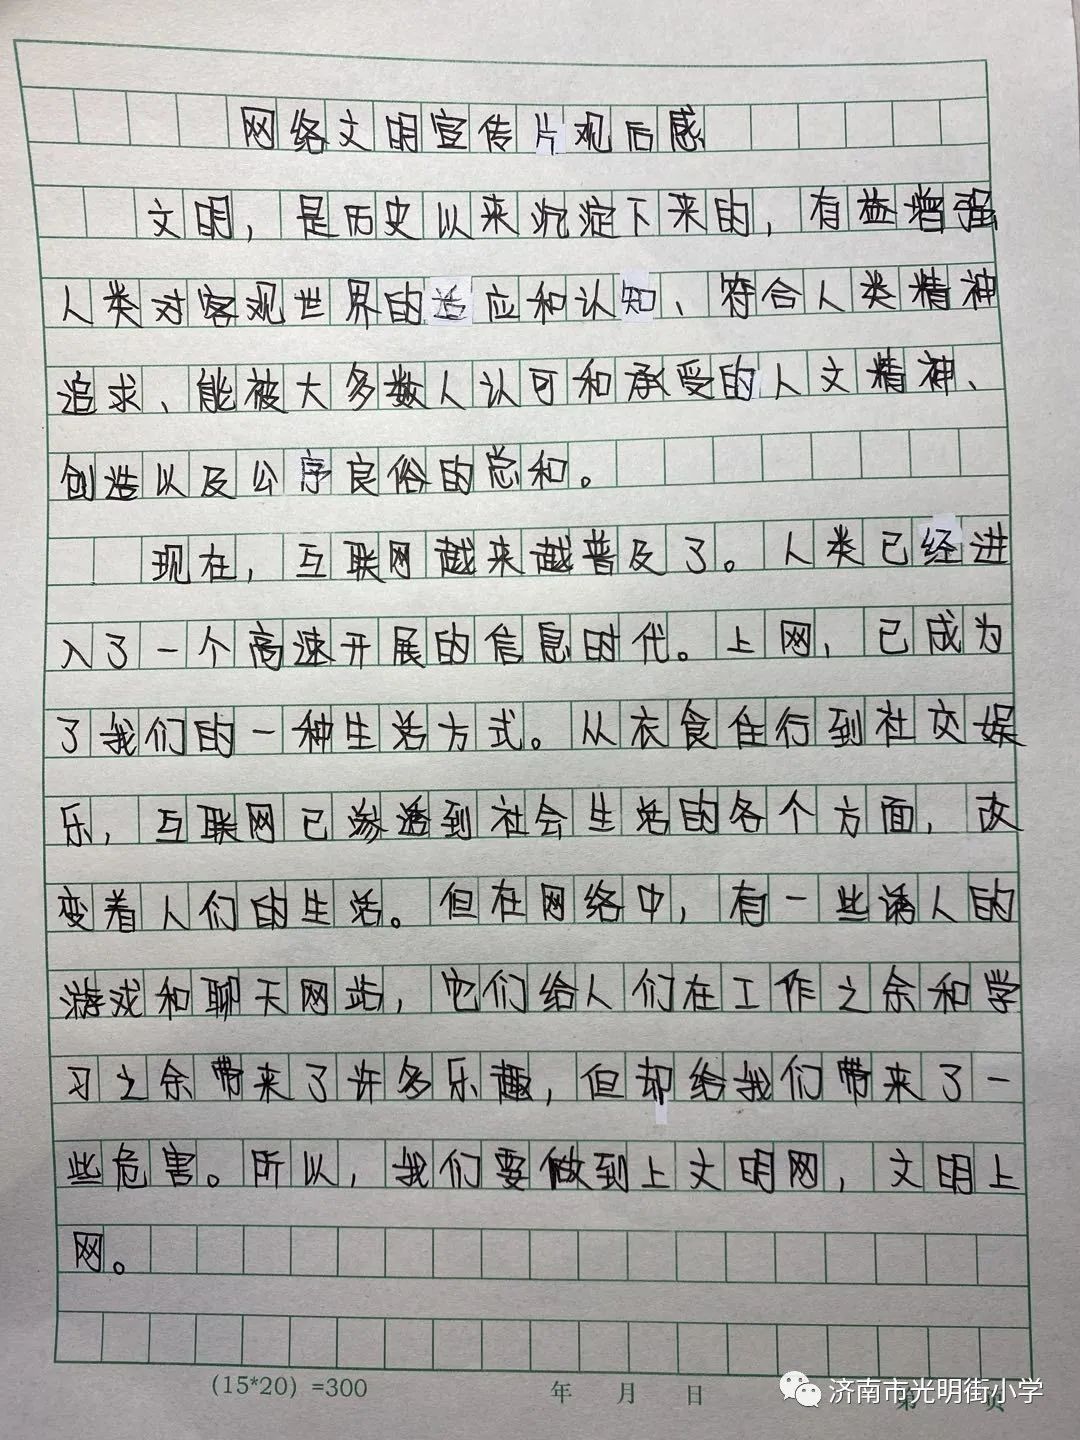 网络文明宣传片观后感
文明，是历史以来沉淀下来的，有益增强
人类对客观世界的适应和认知、符合人类精神
追求、能被大多数人认可和承受的人文精神、
创造以及公序良俗的总和。
现在，互联网越来越普及了。人类已经进
入了一个高速开展的信息时代。上网，已成为
了我们的一种生活方式。从衣食住行到社交娱
乐，互联网已渗透到社会生活的各个方面，改
变着人们的生活。但在网络中，有一些诱人的
游戏和聊天网站，它们给人们在工作之余和学
习之余带来了许多乐趣，但却给我们带来了一
些危害。所以，我们要做到上文明网，文明上
网。
(15*20) =300 年 月 日 第 页
济南市光明街小学